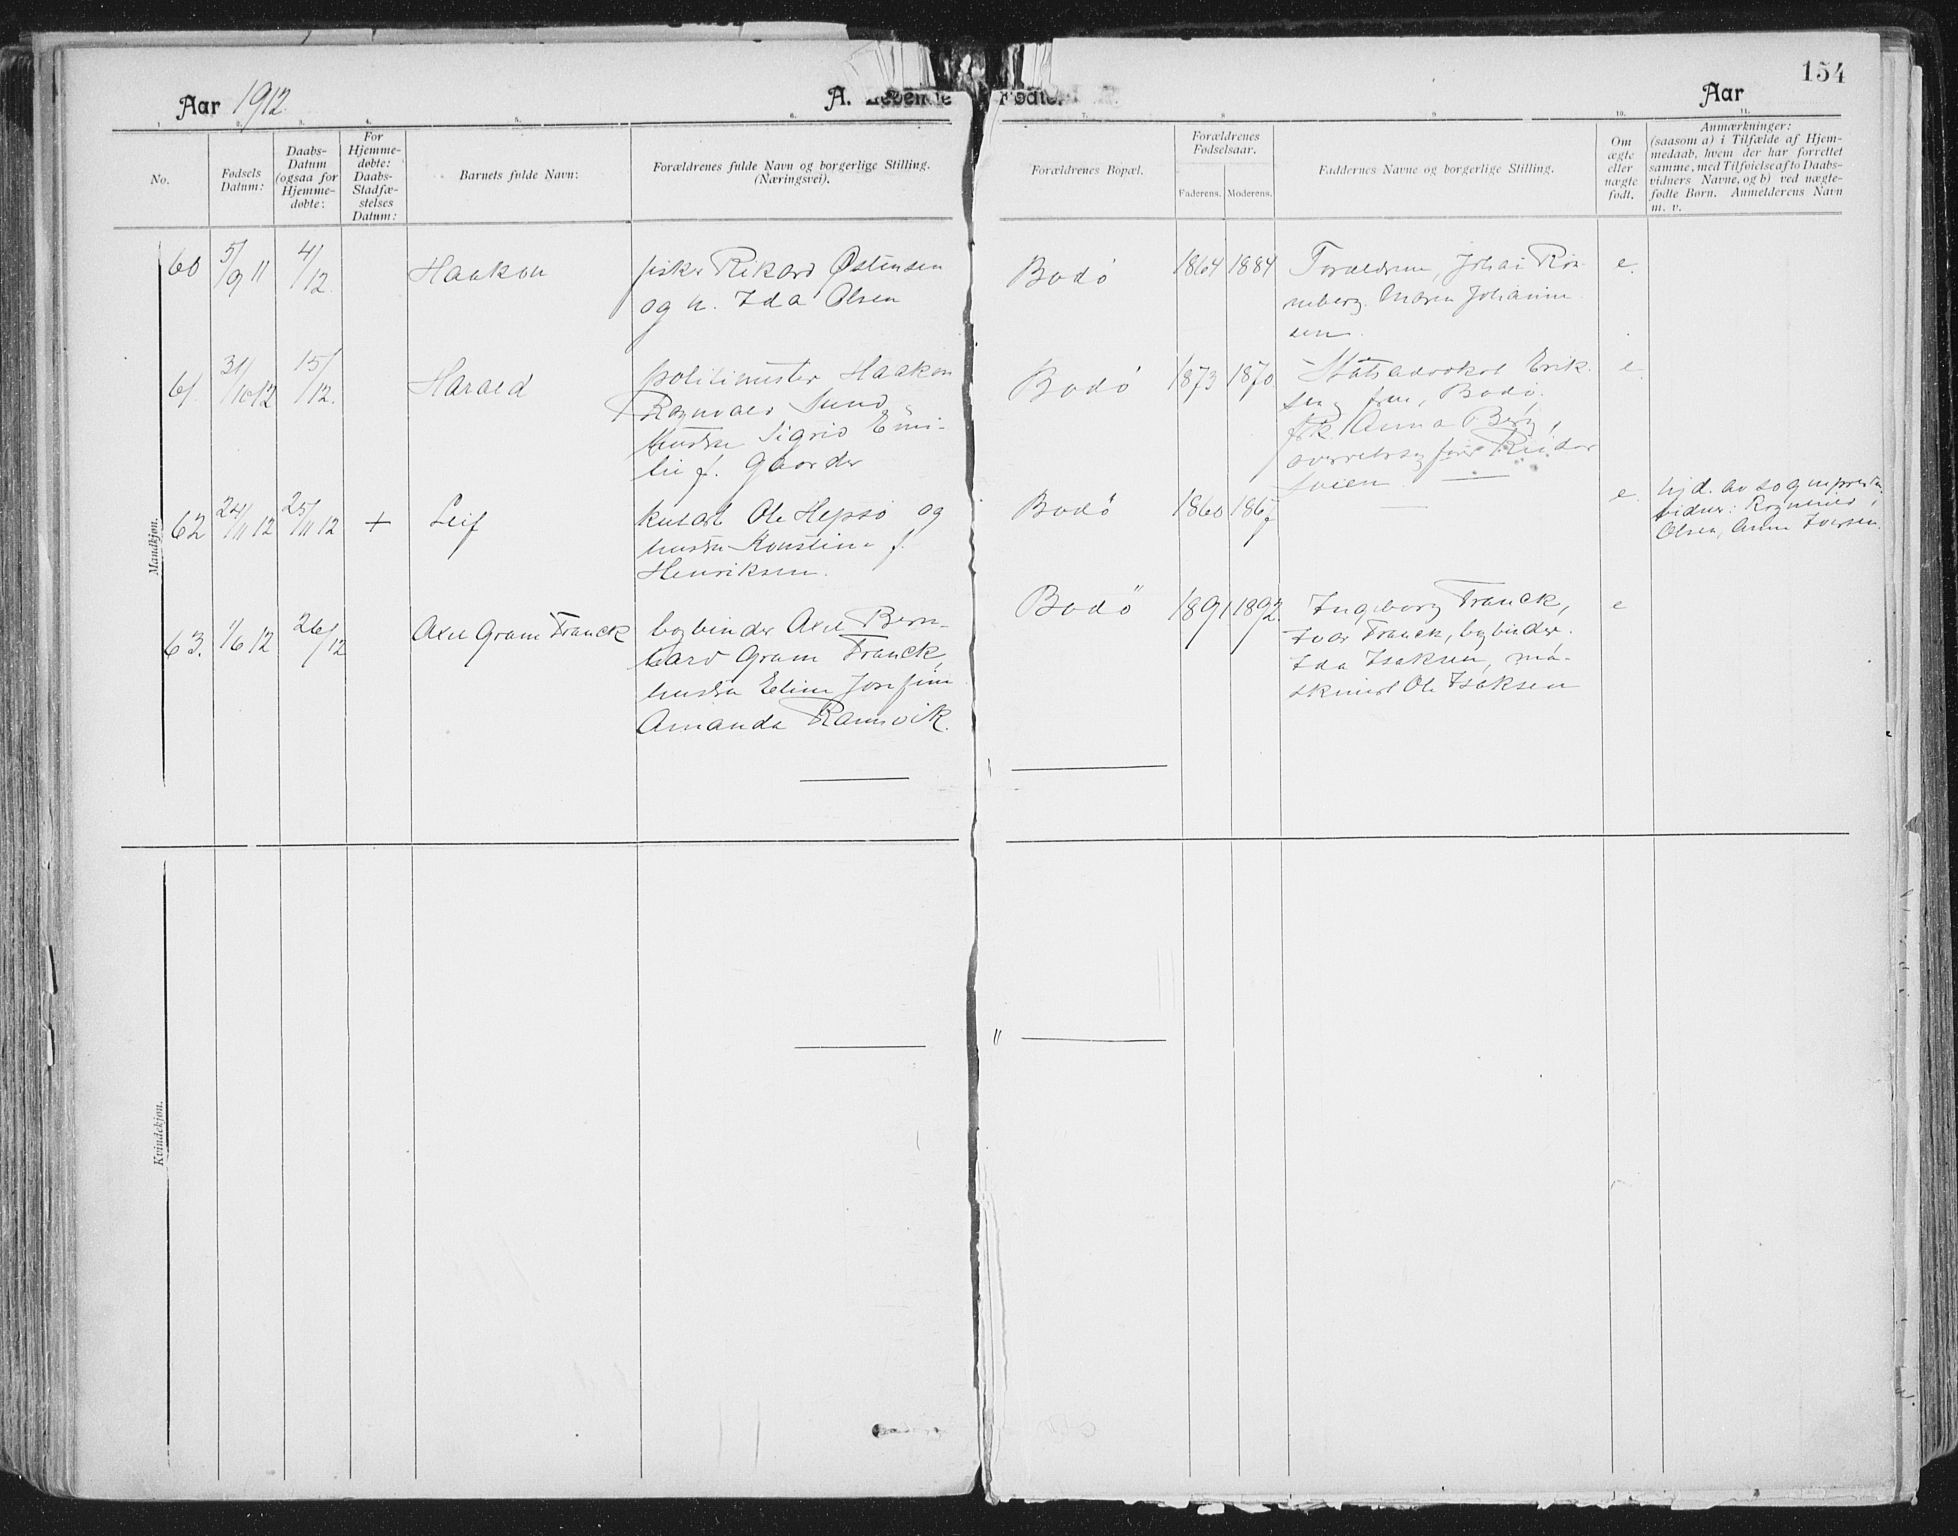 154
Aar 1912
A. Levende Fødte.
Aar
1. 2. 3. 4. 5. 6. 7. 8 9 10. 11.
No.
Fødsels Datum:
Daabs-Datum (ogsaa for Hjemme-døbte:
For Hjemme-døbte: Daabs-Stadfæ-stelses Datum:
Barnets fulde Navn:
Forældrenes fulde Navn og borgerlige Stilling.
(Næringsvei).
Forældrenes Bopæl.
Forældrenes Fødselsaar.
Faderens. Moderens.
Faddernes Navne og borgerlige Stilling.
Om ægte eller nægte født.
Anmærkninger:
(saasom a) i Tilfælde af Hjem-
medaab, hvem der har forrettet
samme, med Tilføielse af to Daabs-
vidners Navne, og b) ved nægte-
fødte Børn. Anmelderens Navn
m. v.
Mandkjøn.
60 5/9 11 4/12 Haakon
fisker Rikard Østensen
og h. Ida Olsen
Bodø 1864 1884
Forældrene, Johai Røn
neberg. Maren Johanne
sen.
e.
61. 31/10 12 15/12. Harald
politimester Haakon
Ragnvald Sund
hustru Sigrid Emi-
lie f. Gaarder
Bodø 1873 1870
Statsadvokat Erik
sen, frue, Bodø.
frk. Anna Berg,
overretssagfører Reidar
Sveen.
e.
62 24/11 12 25/11 12 + Leif
kusk Ole Hepsø og
hustru Konstine f.
Henriksen.
Bodø 1860 1867
e.
hjd. av sogneprest.
vidner: Ragnhild
Olsen, Anna Iversen.
63. 1/6 12 26/12 Axel Gram Franck
bogbinder Axel Bern-
hard Gram Franck,
hustru Eline Josefine
Amanda Ramsvik.
Bodø 1891 1892.
Ingeborg Franck,
Ivar Franck, bogbinder.
Ida Isaksen, ma-
skinist Ole Isaksen
e
Kvindekjøn.